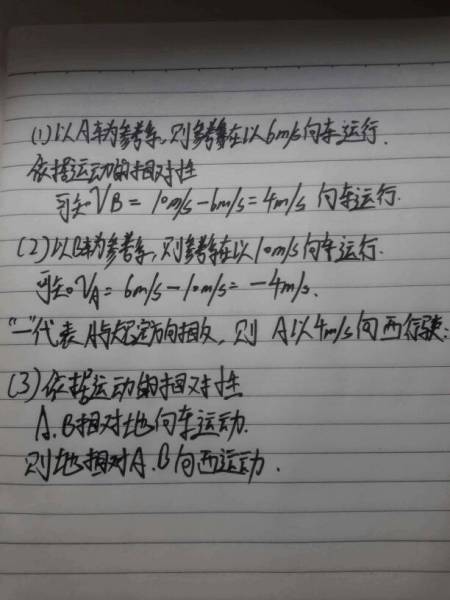 (1)以A车为参考系,则参考系在以6m/s向东运行.
依据运动的相对性
可知VB = 10m/s-6m/s=4m/s 向东运行.
(2)以B车为参考系,则参考系在以10m/s向东运行.
可知VA = 6m/s-10m/s= -4m/s.
“-”代表A与规定方向相反,则 A以4m/s向西行驶;
(3)依据运动的相对性
A.B相对地向东运动.
则地相对A.B向西运动.